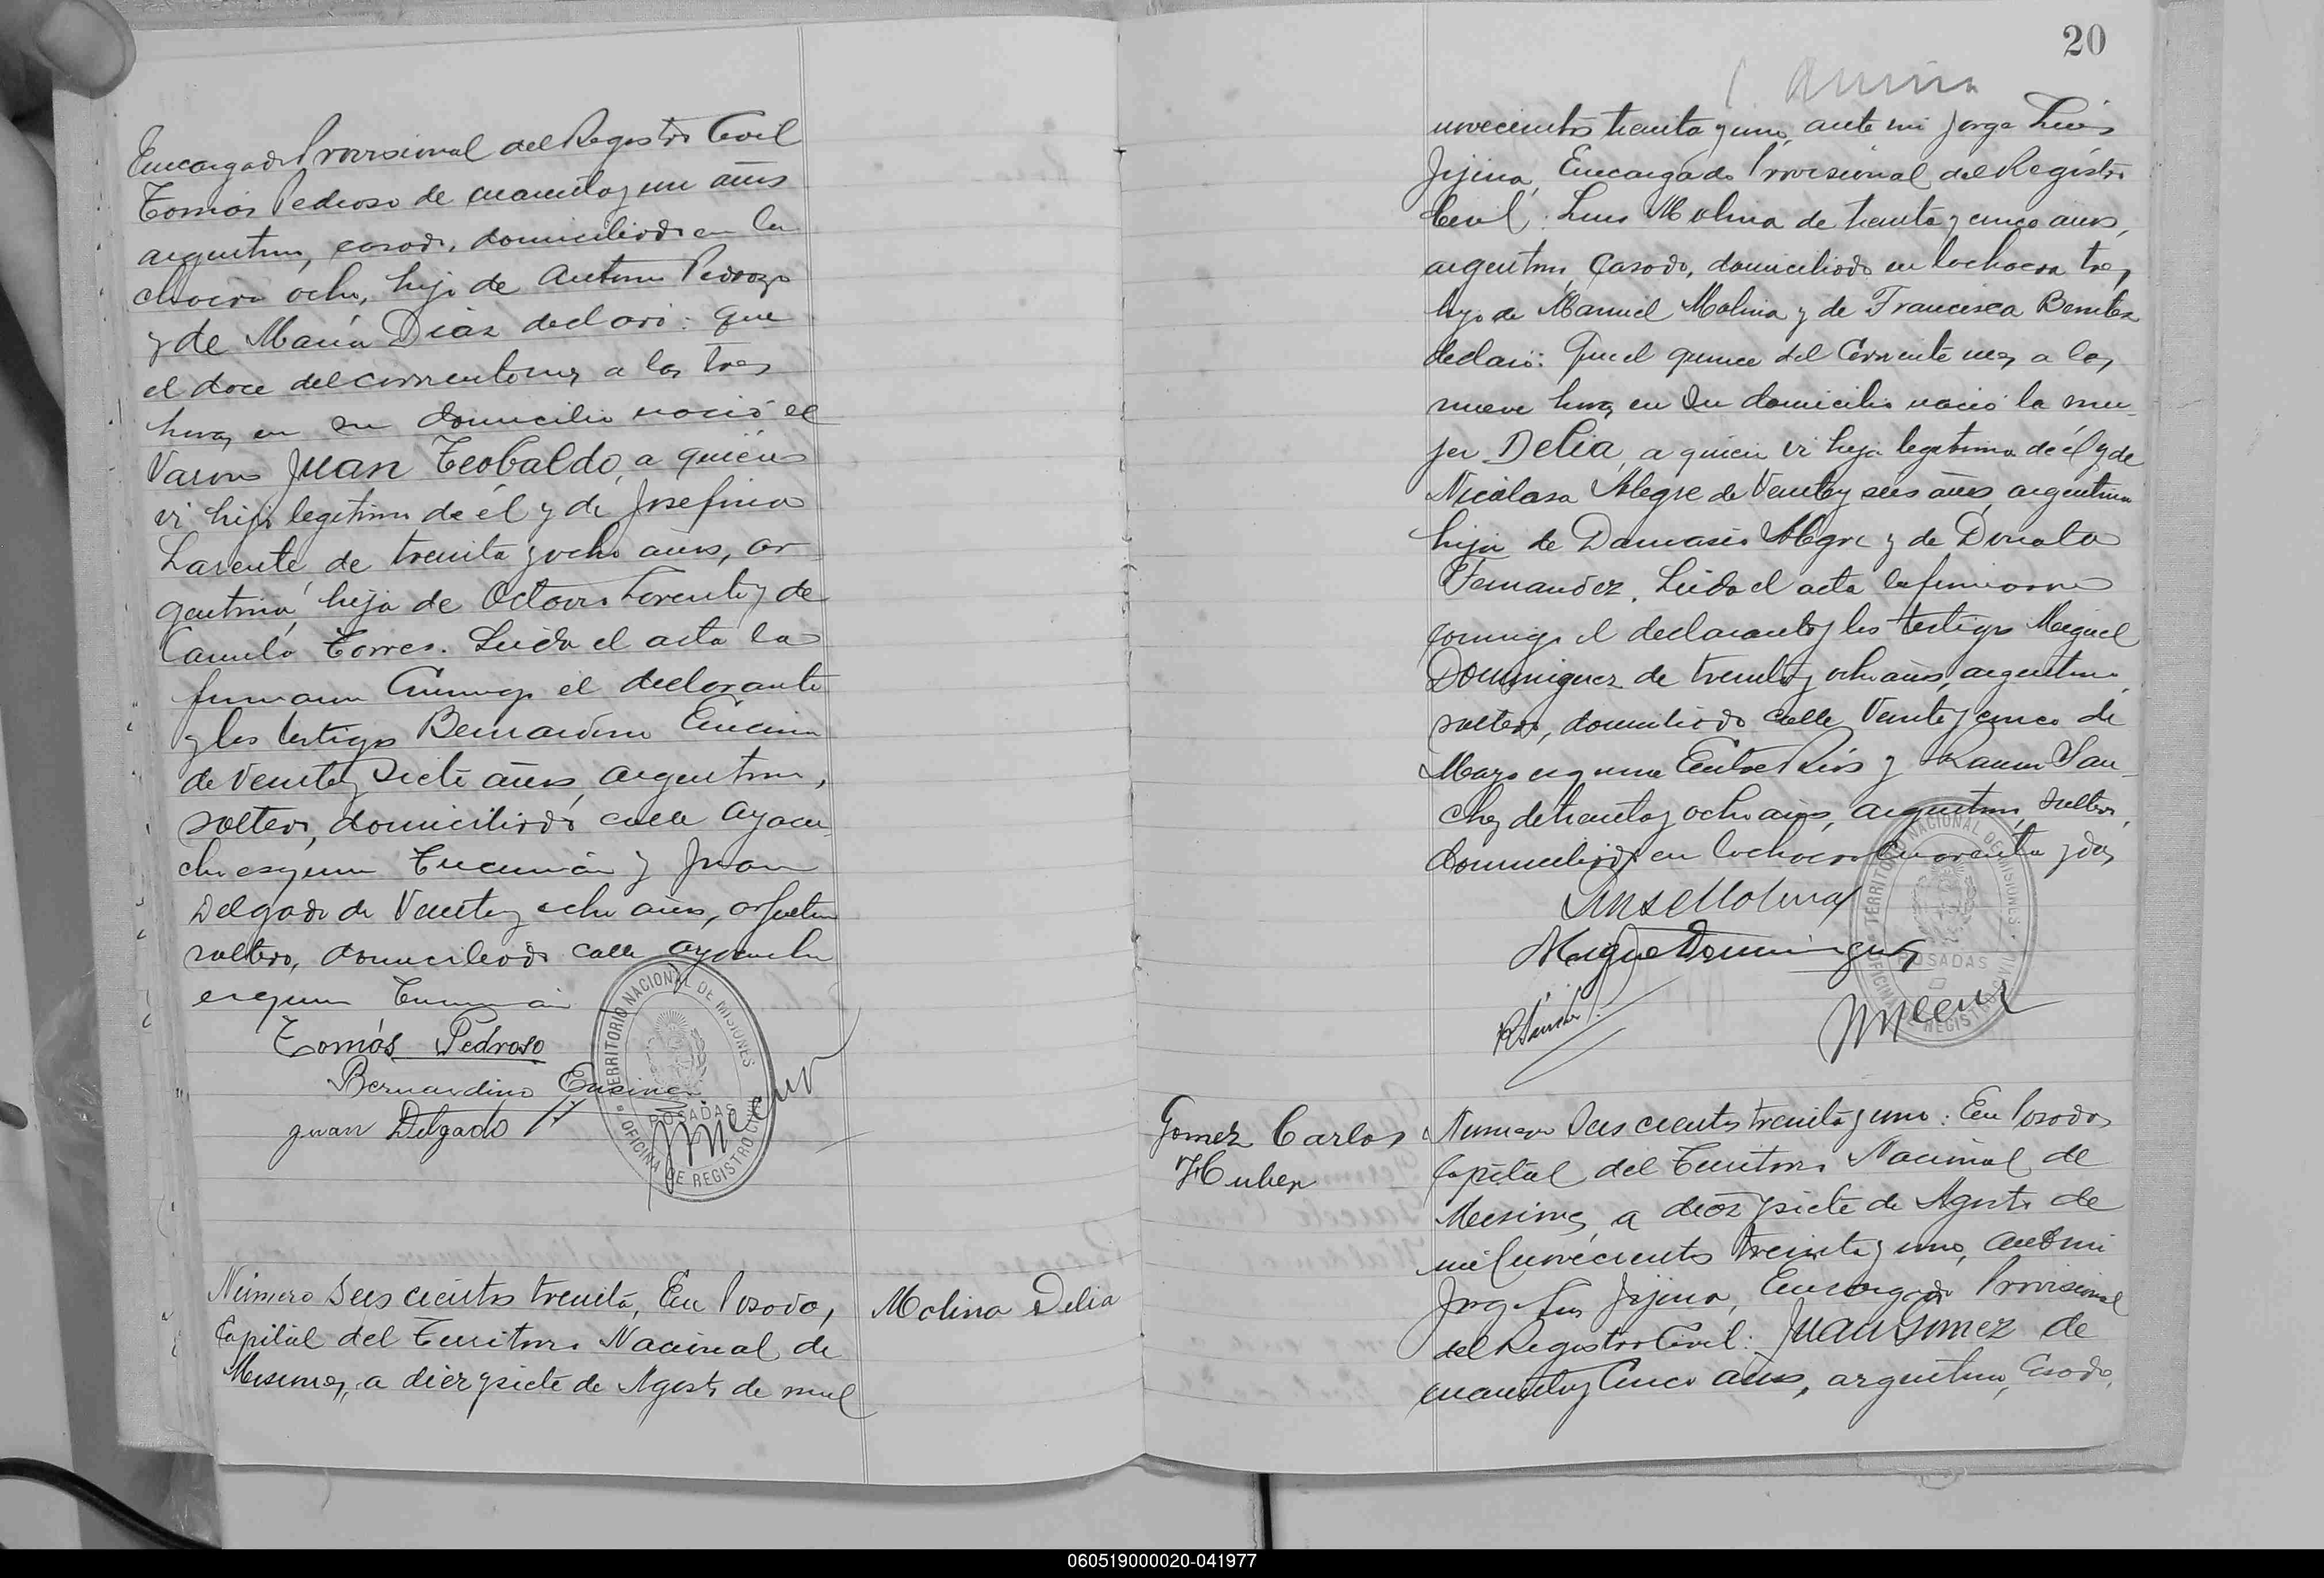 Encargado Provisional del Registro Civil
Tomás Pedroso de cuarenta y un años
argentino, casado, domiciliado en la
chacra ocho, hijo de Antonio Pedrozo
y de María Diaz declaró: que
el doce del corriente mes a las tres
horas en su domicilio nació el
Varon Juan Teobaldo, a quien
vi hijo legitimo de él y de Josefina
Larente, de treinta y ocho años, ar
gentina, hija de Octavio Lorente y de
Camila Torres. Leida el acta la
firmaron conmigo el declarante
y los testigos Bernardino Encina
de Veinte y siete años, argentino,
soltero, domiciliado calle Ayacu
cho esquina Tucumán y Juan
Delgado de Veinte y ocho años, argentino
soltero, domiciliado calle Ayacucho
esquina Tucumán
Tomás Pedroso
Bernardino Ensina
Juan Delgado
TERRITORIO NACIONAL DE MISIONES
POSADAS
OFICINA DE REGISTRO CIVIL
Número Seis cientos treinta, En Posadas,
Capital del Territorio Nacional de
Misiones, a diez y siete de Agosto de mil
Molina Delia
20
novecientos treinta y uno, ante mi Jorge Luis
Jijena, Encargado Provisional del Registro
Civil: Luis Molina de treinta y cinco años,
argentino, casado, domiciliado en la chacra tres,
hijo de Manuel Molina y de Francisca Benitez
declaró: Que el quince del corriente mes a las
nueve horas en su domicilio nació la mu-
jer Delia, a quien vi hija legitima de él y de
Nicolasa Alegre de Veinte y seis años, argentina
hija de Damasio Alegre y de Donata
Fernandez. Leida el acta la firmaron
conmigo el declarante y los testigos Miguel
Dominguez de treinta y ocho años, argentino,
soltero, domiciliado calle Veinte y cinco de
Mayo esquina Entre Rios y Ramon San-
chez de treinta y ocho años, argentino, soltero,
domiciliado en la chacra cuarenta y dos
Luis Molina
Miguel Dominguez
R Sanchez
TERRITORIO NACIONAL DE MISIONES
POSADAS
OFICINA DE REGISTRO CIVIL
Gomez Carlos
Huber
Numero Seis cientos treinta y uno: En Posadas
Capital del Territorio Nacional de
Misiones, a diez y siete de Agosto de
mil novecientos treinta y uno, ante mi
Jorge Luis Jijena, Encargado Provisional
del Registro Civil: Juan Gomez de
cuarenta y cinco años, argentino, casado,
060519000020-041977